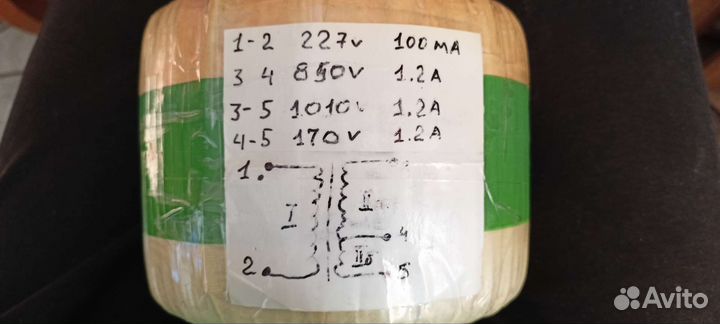 1-2 227v 100мА
3 4 850v 1.2А
3-5 1010v 1.2А
4-5 170v 1.2А
1.
I
4
2
IIб
5
Avito